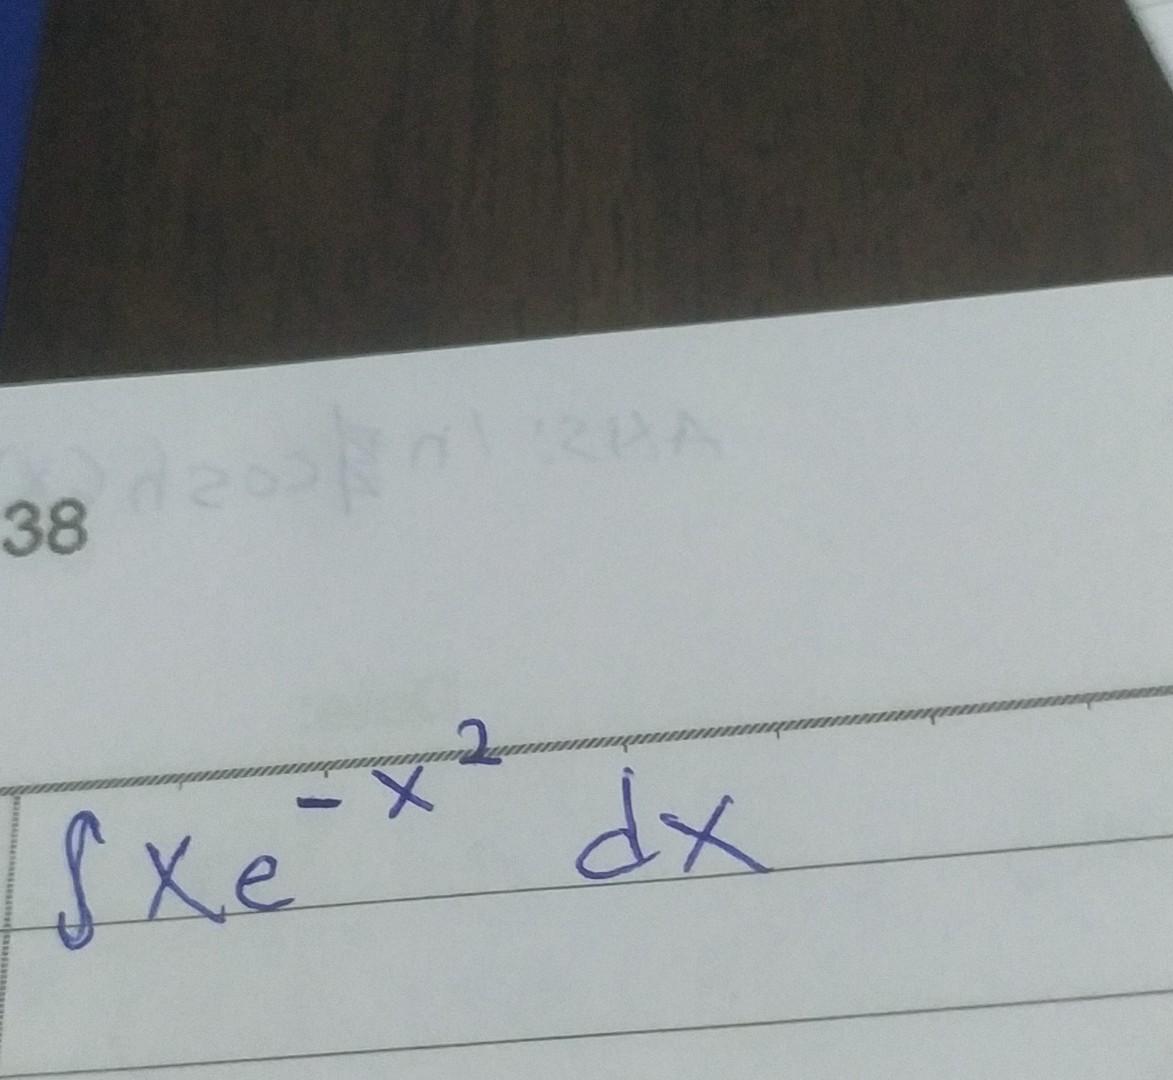 38
∫xe^{-x^2} dx